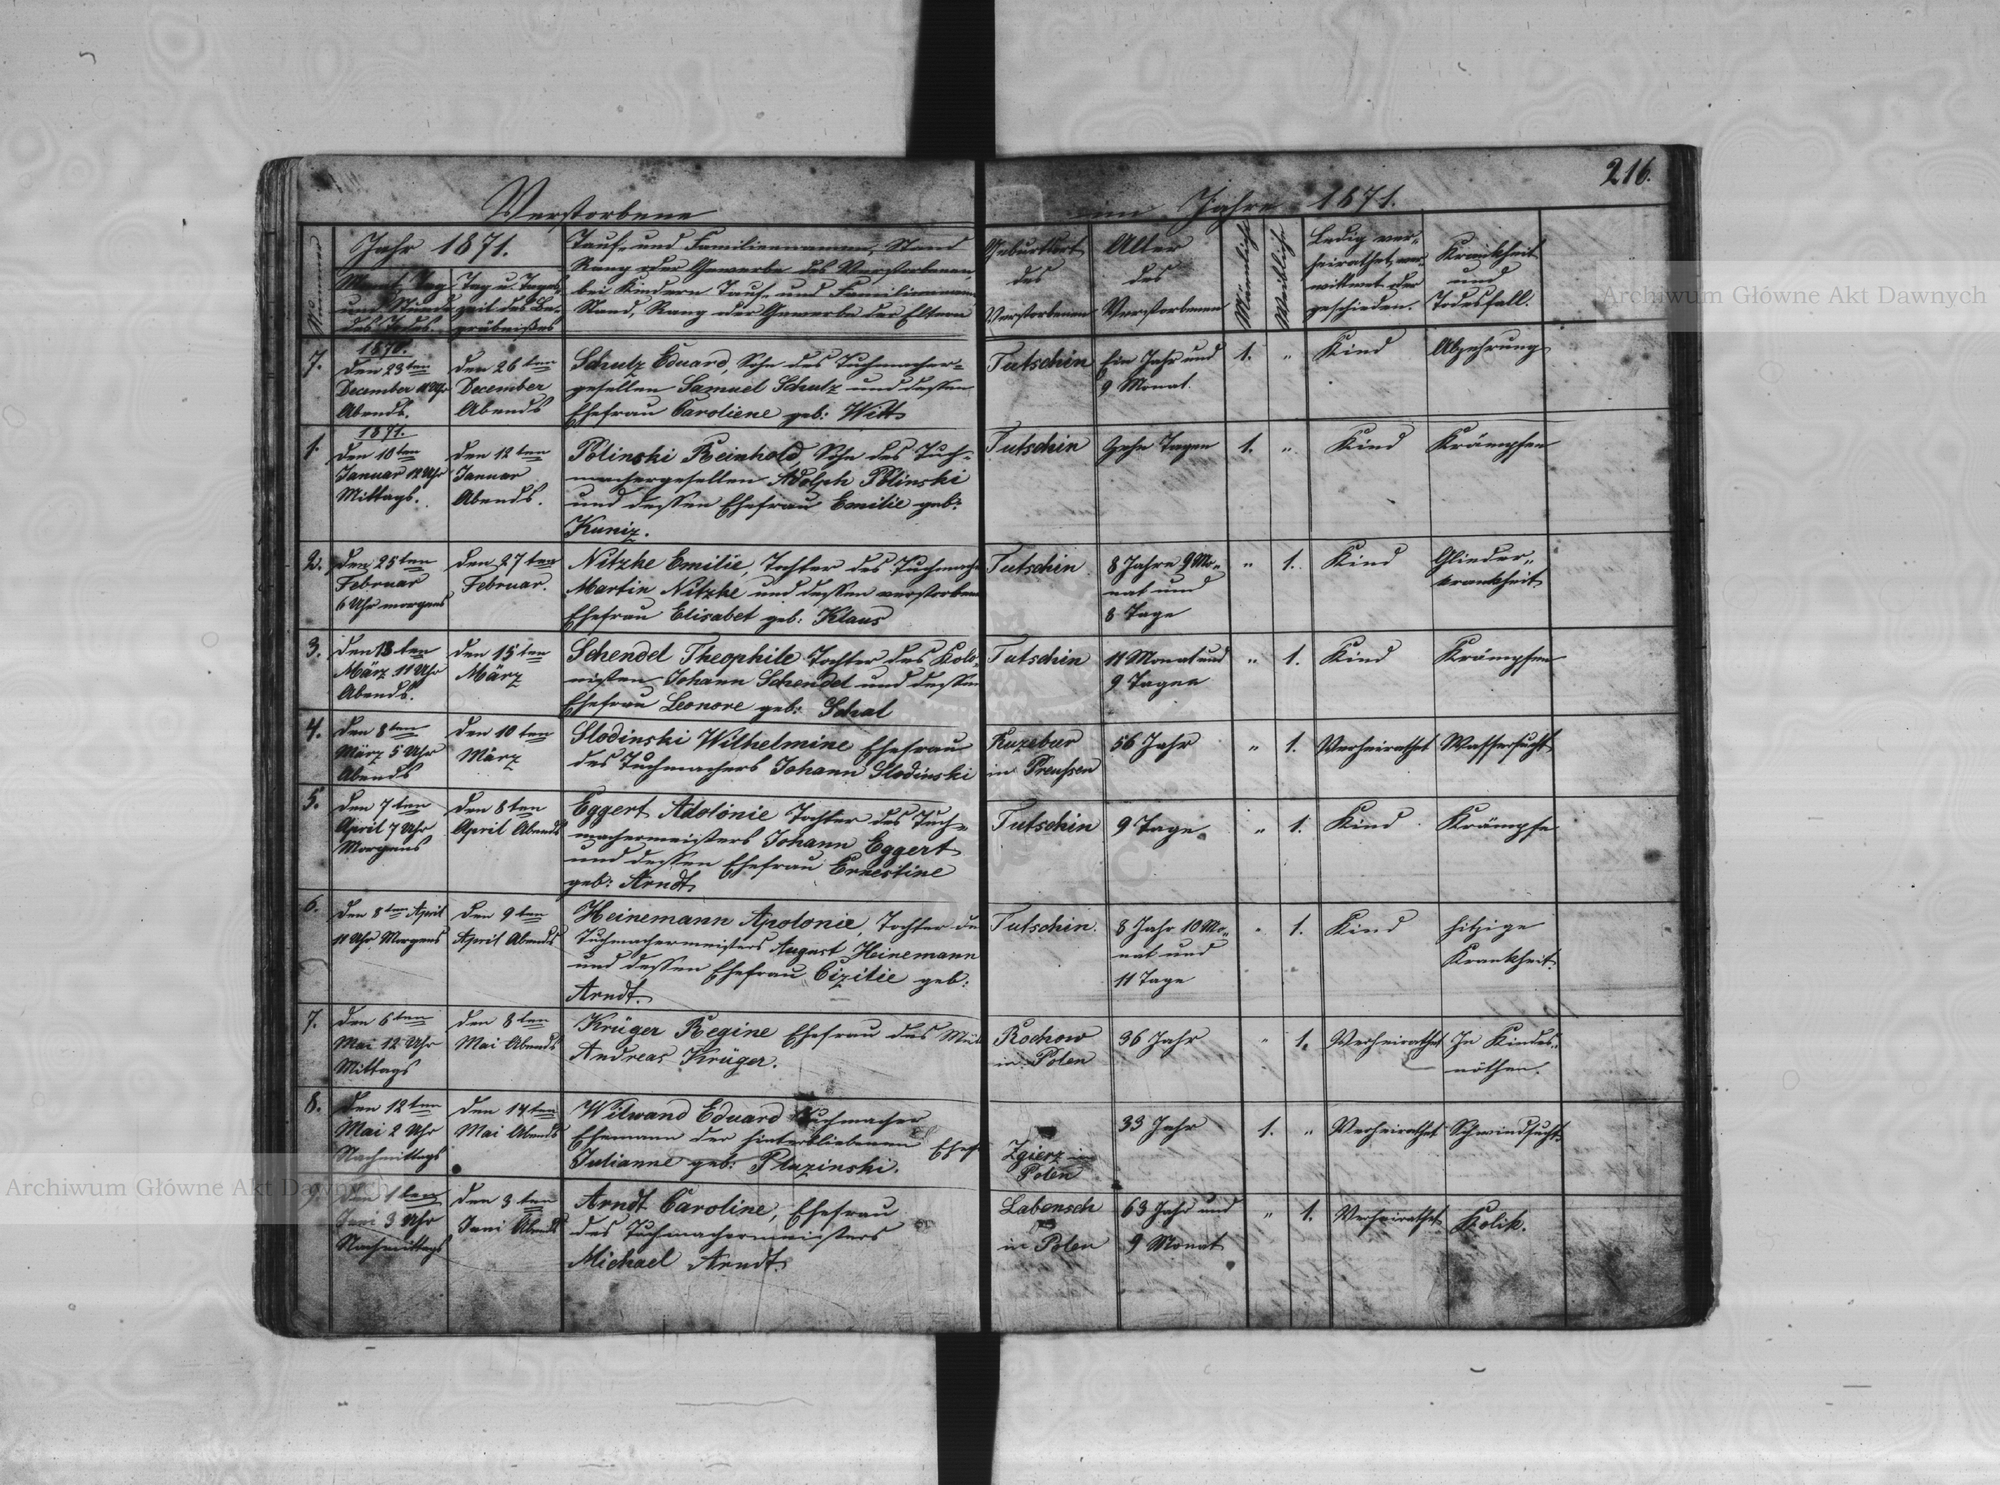 216.
Verstorbene im Jahre 1871.
Jahr 1871.
Monat, Tag und Stunde des Todes.
Tag u. Tages-
zeit des Be-
gräbnißes
Tauf- und Familiennamen, Stand
Rang oder Gewerbe des Verstorbenen
bei Kindern Tauf- und Familiennamen
Stand, Rang oder Gewerbe der Eltern
Geburtsort
des
Verstorbenen
Alter
des
Verstorbenen
Männliche
Weibliche
Ledig ver-
heirathet, ver-
wittwet oder
geschieden.
Krankheit
und
Todesfall.
7.
1870.
den 23ten
December 11 Uhr
Abends.
den 26ten
December
Abends
Schulz Eduard, Sohn des Tuchmacher-
gesellen Samuel Schulz und dessen
Ehefrau Caroliene geb: Witt
Tutschin
Ein Jahr und
9 Monat.
1.
"
Kind
Abzehrung
1.
1871.
den 10ten
Januar 12 Uhr
Mittags.
den 12ten
Januar
Abends.
Polinski Reinhold, Sohn des Tuch-
machergesellen Adolph Polinski
und dessen Ehefrau Emilie geb:
Kuniz.
Tutschin
Zehn Tagen
1.
"
Kind
Krämpfen
2.
den 25ten
Februar
6 Uhr morgens
den 27ten
Februar.
Nitzke Emilie, Tochter des Tuchmach
Martin Nitzke und dessen verstorben
Ehefrau Elisabet geb: Klaus
Tutschin
8 Jahre 9 Mo-
nat und
8 Tage
"
1.
Kind
Glieder-
krankheit
3.
den 13ten
März 11 Uhr
Abends.
den 15ten
März
Schendel Theophile Tochter des Kolo-
nisten Johann Schendel und dessen
Ehefrau Leonore geb: Schal
Tutschin
11 Monat und
9 Tagen
"
1.
Kind
Krämpfen
4.
den 8ten
März 5 Uhr
Abends
den 10ten
März
Slodinski Wilhelmine Ehefrau
des Tuchmachers Johann Slodinski
in Preußen
56 Jahr
"
1.
Verheirathet
Wassersucht
5.
den 7ten
April 7 Uhr
Morgens
den 8ten
April Abends
Eggert Adolonie Tochter des Tuch-
machermeisters Johann Eggert
und dessen Ehefrau Ernestine
geb: Arndt
Tutschin
9 Tage
"
1.
Kind
Krämpfe
6.
den 8ten April
11 Uhr Morgens
den 9ten
April Abends
Heinemann Apolonie, Tochter de
Tuchmachermeisters August Heinemann
und dessen Ehefrau Cizilie geb:
Arndt.
Tutschin
8 Jahr 10 Mo-
nat und
11 Tage
"
1.
Kind
hitzige
Krankheit
7.
den 6ten
Mai 12 Uhr
Mittags
den 8ten
Mai Abends
Krüger Regine Ehefrau des Mül
Andreas Krüger.
Rochow
in Polen
36 Jahr
"
1.
Verheirathet
In Kindes-
nöthen.
8.
den 12ten
Mai 2 Uhr
Nachmittags
den 14ten
Mai Abends
Wilwand Eduard Tuchmacher
Ehemann der hinterbliebenen Ehef
Julianne geb: Pluzinski.
Zgierz in
Polen
33 Jahr
1.
"
Verheirathet
Schwindsucht
9.
den 1ten
Juni 3 Uhr
Nachmittags
den 3ten
Juni Abends
Arndt Caroline, Ehefrau
des Tuchmachermeisters
Michael Arndt.
Labensch
in Polen
63 Jahr und
9 Monat
"
1.
Verheirathet
Kolik.
Archiwum Główne Akt Dawnych
Archiwum Główne Akt Dawnych